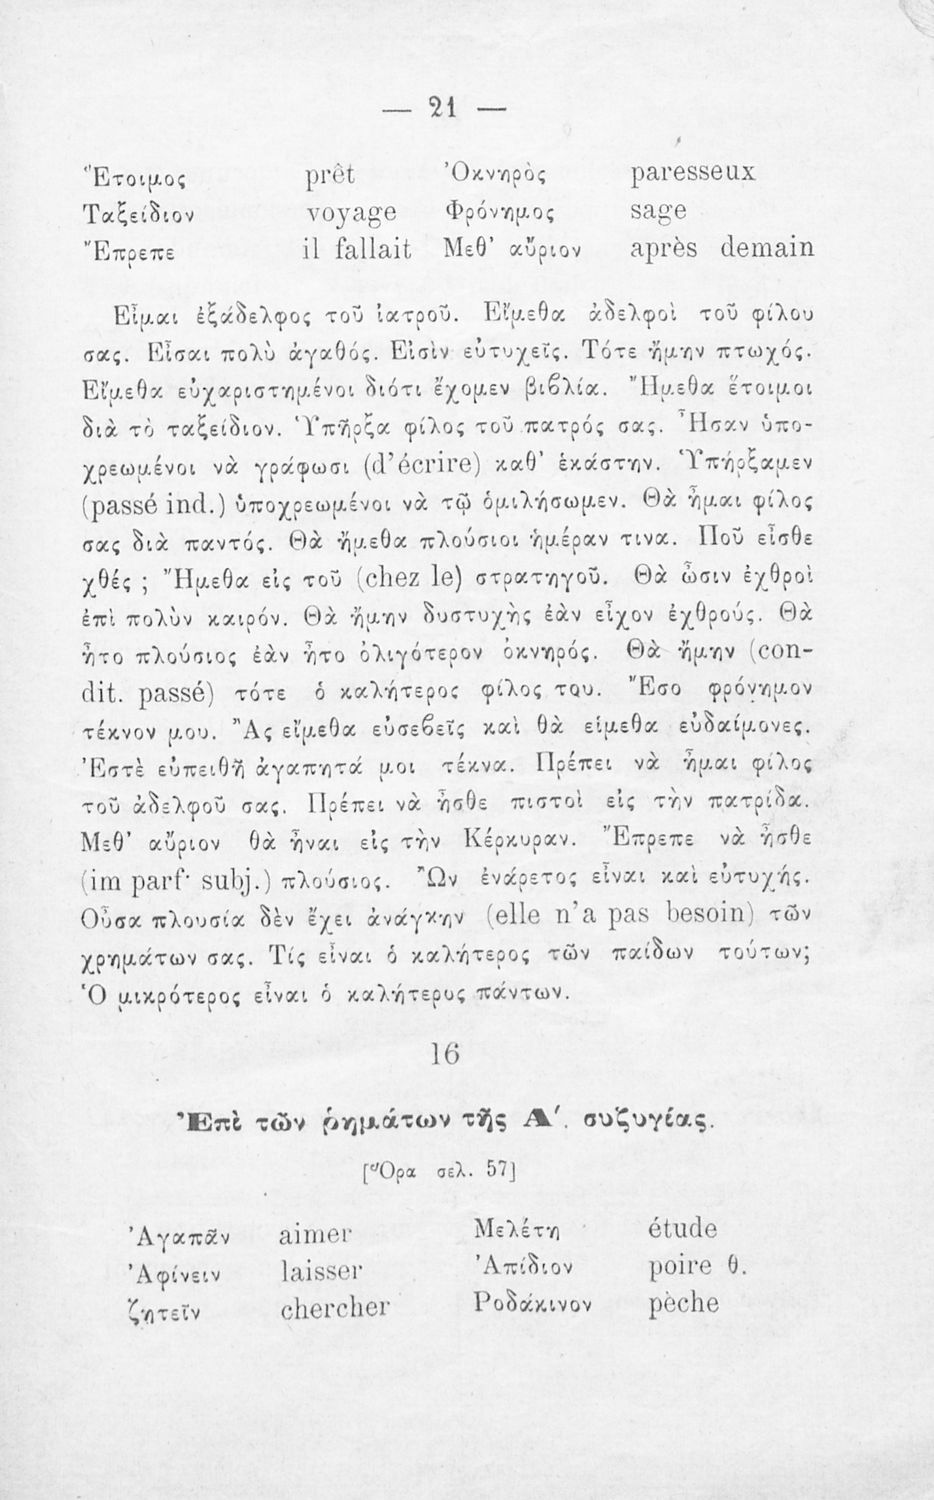 — 21 —
Ἕτοιμος prêt Ὀκνηρὸς paresseux
Ταξείδιον voyage Φρόνημος sage
Ἔπρεπε il fallait Μεθ’ αὔριον après demain
Εἶμαι ἐξάδελφος τοῦ ἰατροῦ. Εἴμεθα ἀδελφοὶ τοῦ φίλου
σας. Εἶσαι πολὺ ἀγαθός. Εἰσὶν εὐτυχεῖς. Τότε ἤμην πτωχός.
Εἴμεθα εὐχαριστημένοι διότι ἔχομεν βιϐλία. Ἤμεθα ἕτοιμοι
διὰ τὸ ταξείδιον. Ὑπῆρξα φίλος τοῦ πατρός σας. Ἦσαν ὑπο-
χρεωμένοι νὰ γράφωσι (d’écrire) καθ’ ἑκάστην. Ὑπήρξαμεν
(passé ind.) ὑποχρεωμένοι νὰ τῷ ὁμιλήσωμεν. Θὰ ἦμαι φίλος
σας διὰ παντός. Θὰ ἤμεθα πλούσιοι ἡμέραν τινα. Ποῦ εἶσθε
χθές ; Ἤμεθα εἰς τοῦ (chez le) στρατηγοῦ. Θὰ ὦσιν ἐχθροὶ
ἐπὶ πολὺν καιρόν. Θὰ ἤμην δυστυχὴς ἐὰν εἶχον ἐχθρούς. Θὰ
ἦτο πλούσιος ἐὰν ἦτο ὀλιγότερον ὀκνηρός. Θὰ ἤμην (con-
dit. passé) τότε ὁ καλήτερος φίλος του. Ἔσο φρόνημον
τέκνον μου. Ἂς εἴμεθα εὐσεϐεῖς καὶ θὰ εἴμεθα εὐδαίμονες.
Ἐστὲ εὐπειθῆ ἀγαπητά μοι τέκνα. Πρέπει νὰ ἦμαι φίλος
τοῦ ἀδελφοῦ σας. Πρέπει νὰ ἦσθε πιστοὶ εἰς τὴν πατρίδα.
Μεθ’ αὔριον θὰ ἦναι εἰς τὴν Κέρκυραν. Ἔπρεπε νὰ ἦσθε
(im parf· subj.) πλούσιος. Ὢν ἐνάρετος εἶναι καὶ εὐτυχής.
Οὖσα πλουσία δὲν ἔχει ἀνάγκην (elle n’a pas besoin) τῶν
χρημάτων σας. Τίς εἶναι ὁ καλήτερος τῶν παίδων τούτων;
Ὁ μικρότερος εἶναι ὁ καλήτερος πάντων.
16
Ἐπὶ τῶν ῥημάτων τῆς Α΄. συζυγίας.
[Ὅρα σελ. 57]
Ἀγαπᾶν aimer Μελέτη étude
Ἀφίνειν laisser Ἀπίδιον poire θ.
ζητεῖν chercher Ροδάκινον pèche